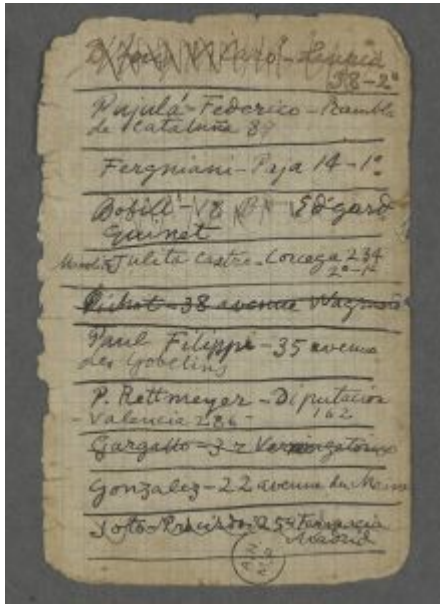 38-2º
Pujulá-Federico-Rambla
de Cataluña 89
Fergniani-Paja 14-1º
Bobill Edgard
Quinet
Julita Castro-Corcega 234
Pichot-38 avenue Wagram
Paul Filippi-35 avenue
des Gobelins
P. Rettmeyer-Diputacion
162
-Valencia 286-
Gargallo-3 r Vercingetorix
Gonzalez-22 avenue du Maine
254 Farmacia
Madrid